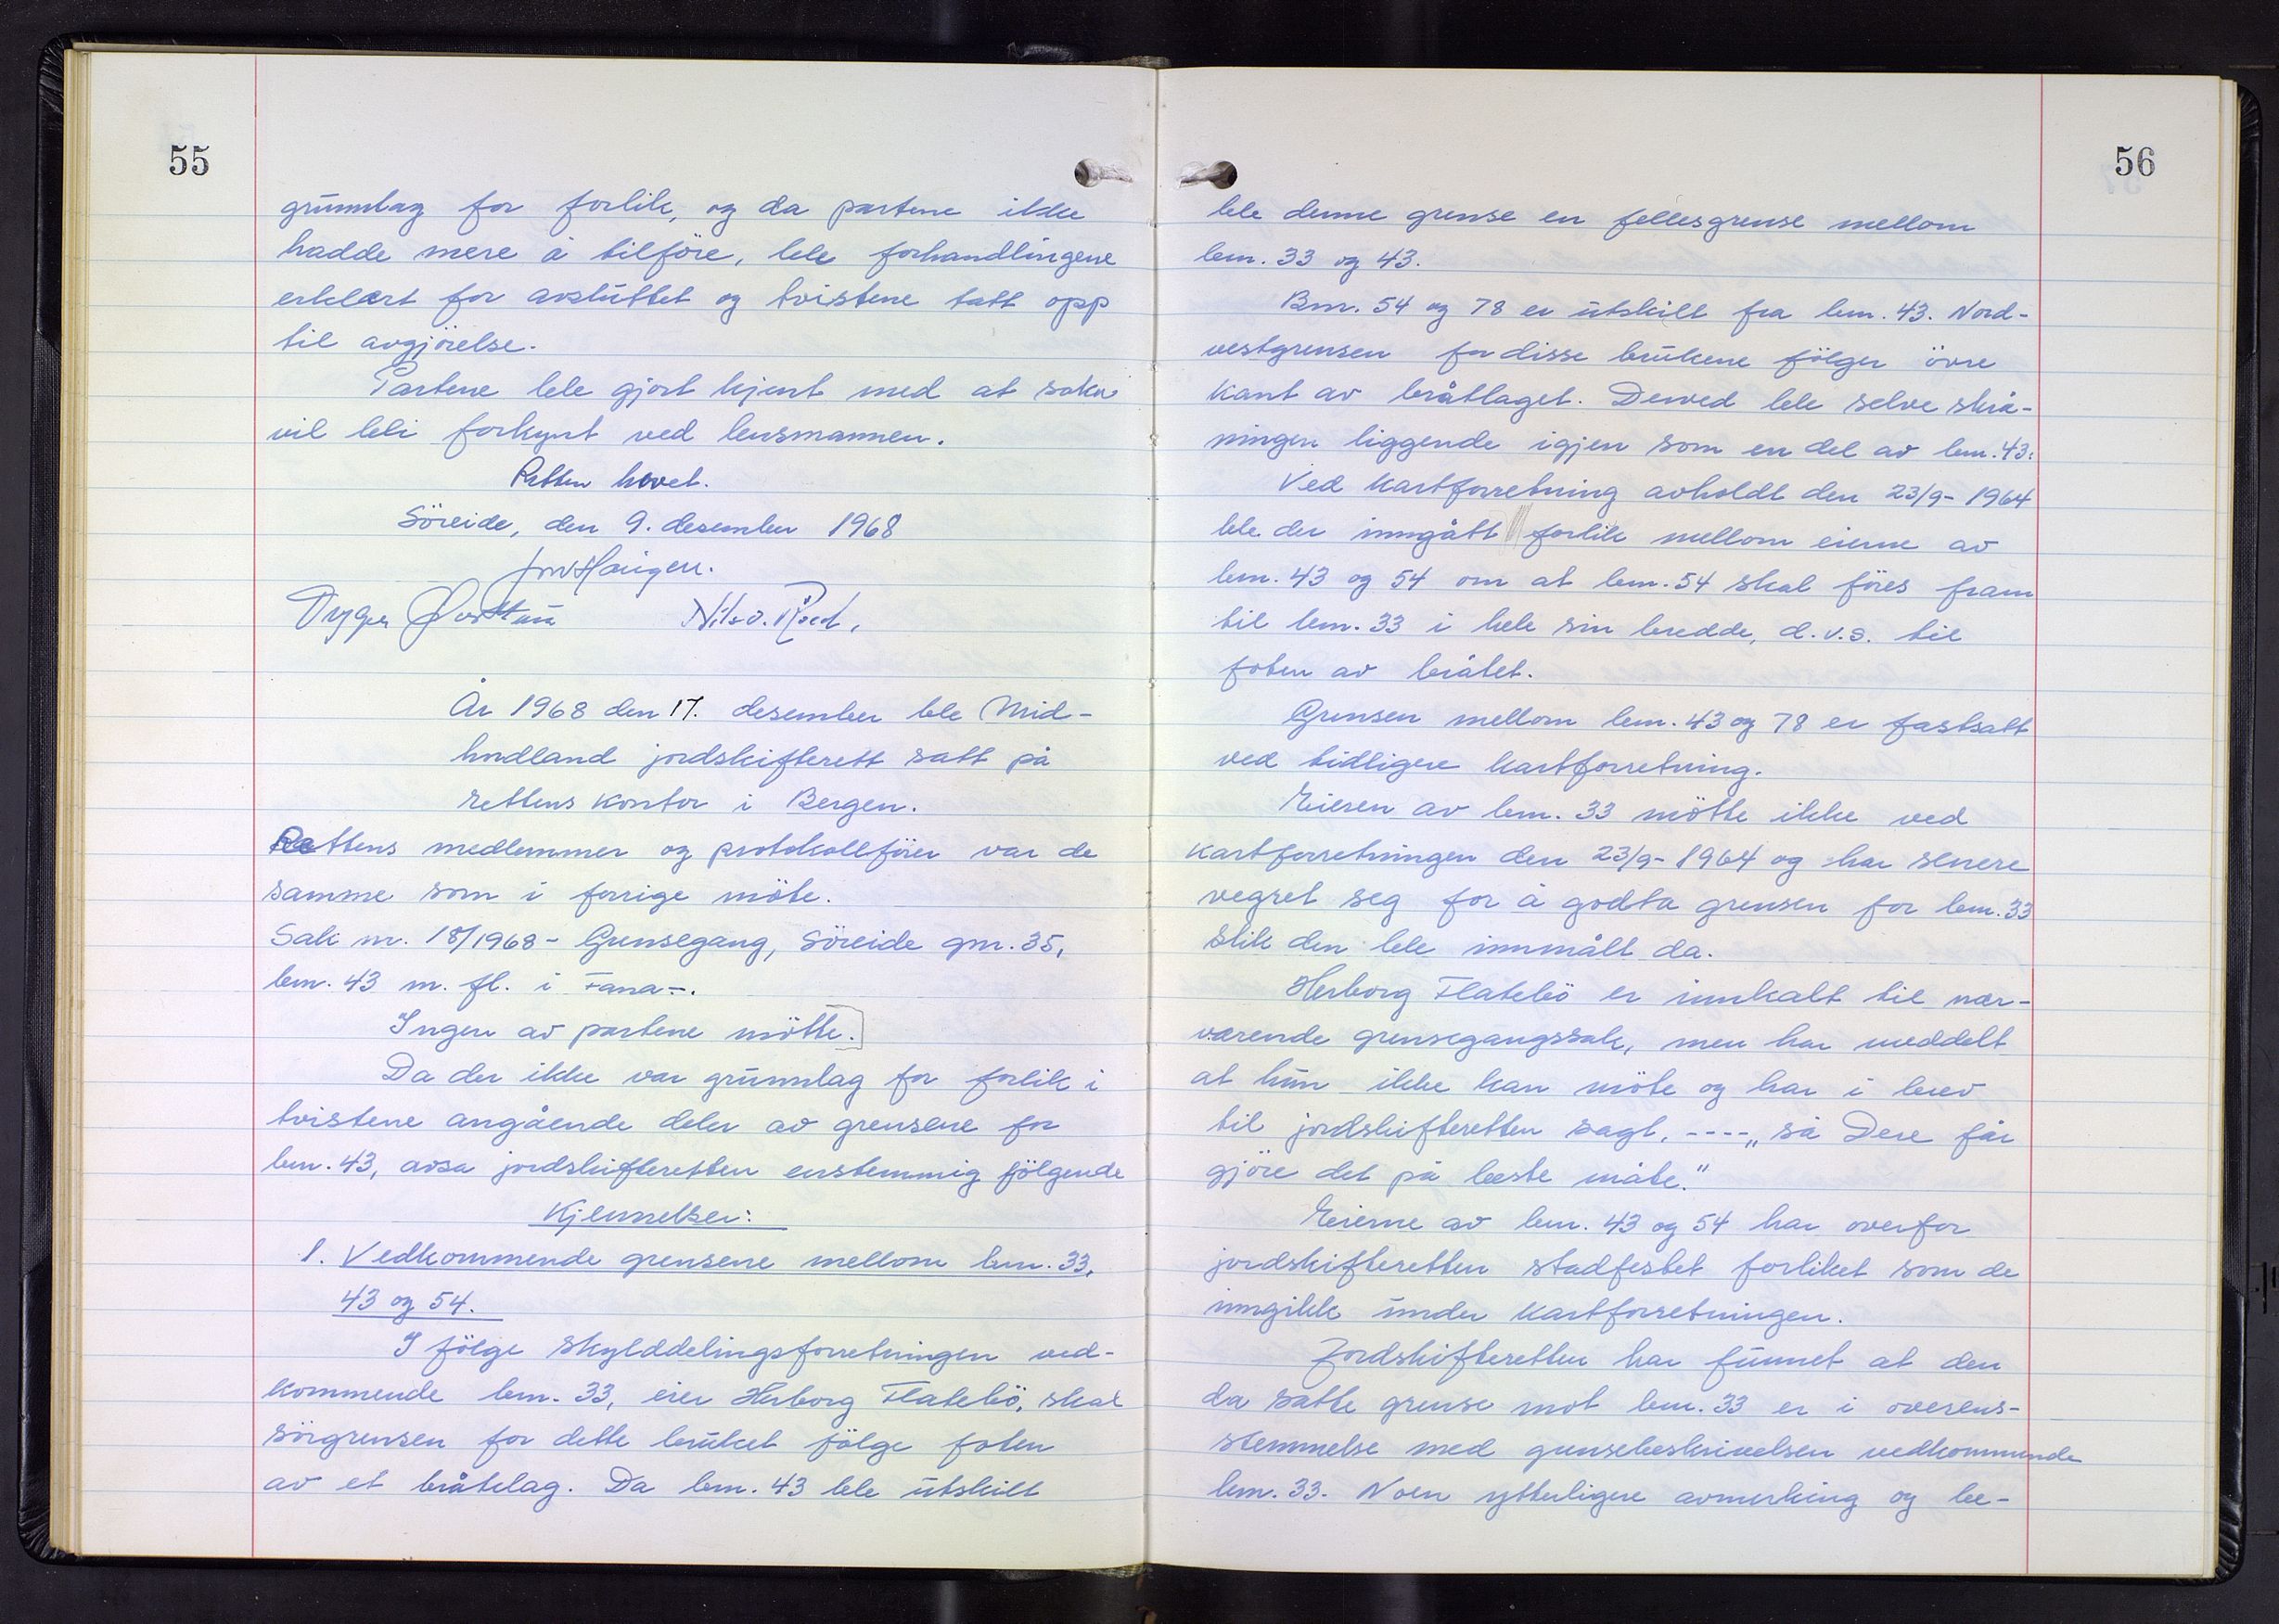 55
grunnlag for forlik, og da partene ikke
hadde mere å tilföre, ble forhandlingene
erklært for avsluttet og tvistene tatt opp
til avgjörelse.
Partene ble gjort kjent med at saken
vil bli forkynt ved lensmannen.
Retten hevet.
Söreide, den 9. desember 1968
Nils O. Röed.
År 1968 den 17. desember ble Mid-
hordland jordskifterett satt på
rettens kontor i Bergen.
Rettens medlemmer og protokollförer var de
samme som i forrige möte.
Sak nr. 18/1968 - Grensegang, Söreide gnr. 35,
bnr. 43 m. fl. i Fana -.
Ingen av partene mötte.
Da der ikke var grunnlag for forlik i
tvistene angående deler av grensene for
bnr. 43, avsa jordskifteretten enstemmig fölgende
Kjennelser:
1. Vedkommende grensene mellom bnr. 33,
43 og 54.
I fölge skylddelingsforretningen ved-
kommende bnr. 33, eier Herborg Flatebö, skal
sörgrensen for dette bruket fölge foten
av et bråtelag. Da bnr. 43 ble utskilt
56
ble denne grense en fellesgrense mellom
bnr. 33 og 43.
Bnr. 54 og 78 er utskilt fra bnr. 43. Nord-
vestgrensen for disse brukene fölger övre
kant av bråtlaget. Derved ble selve skrå-
ningen liggende igjen som en del av bnr. 43.
Ved kartforretning avholdt den 23/9- 1964
ble der inngått forlik mellom eierne av
bnr. 43 og 54 om at bnr. 54 skal föres fram
til bnr. 33 i hele sin bredde, d.v.s. til
foten av bråtet.
Grensen mellom bnr. 43 og 78 er fastsatt
ved tidligere kartforretning.
Eieren av bnr. 33 mötte ikke ved
kartforretningen den 23/9- 1964 og har senere
vegret seg for å godta grensen for bnr. 33
slik den ble innmålt da.
Herborg Flatebö er innkalt til nær-
værende grensegangssak, men har meddelt
at hun ikke kan möte og har i brev
til jordskifteretten sagt, ---- „så Dere får
gjöre det på beste måte."
Eierne av bnr. 43 og 54 har overfor
jordskifteretten stadfestet forliket som de
inngikk under kartforretningen.
Jordskifteretten har funnet at den
da satte grense mot bnr. 33 er i overens-
stemmelse med grensebeskrivelsen vedkommende
bnr. 33. Noen ytterligere avmerking og be-